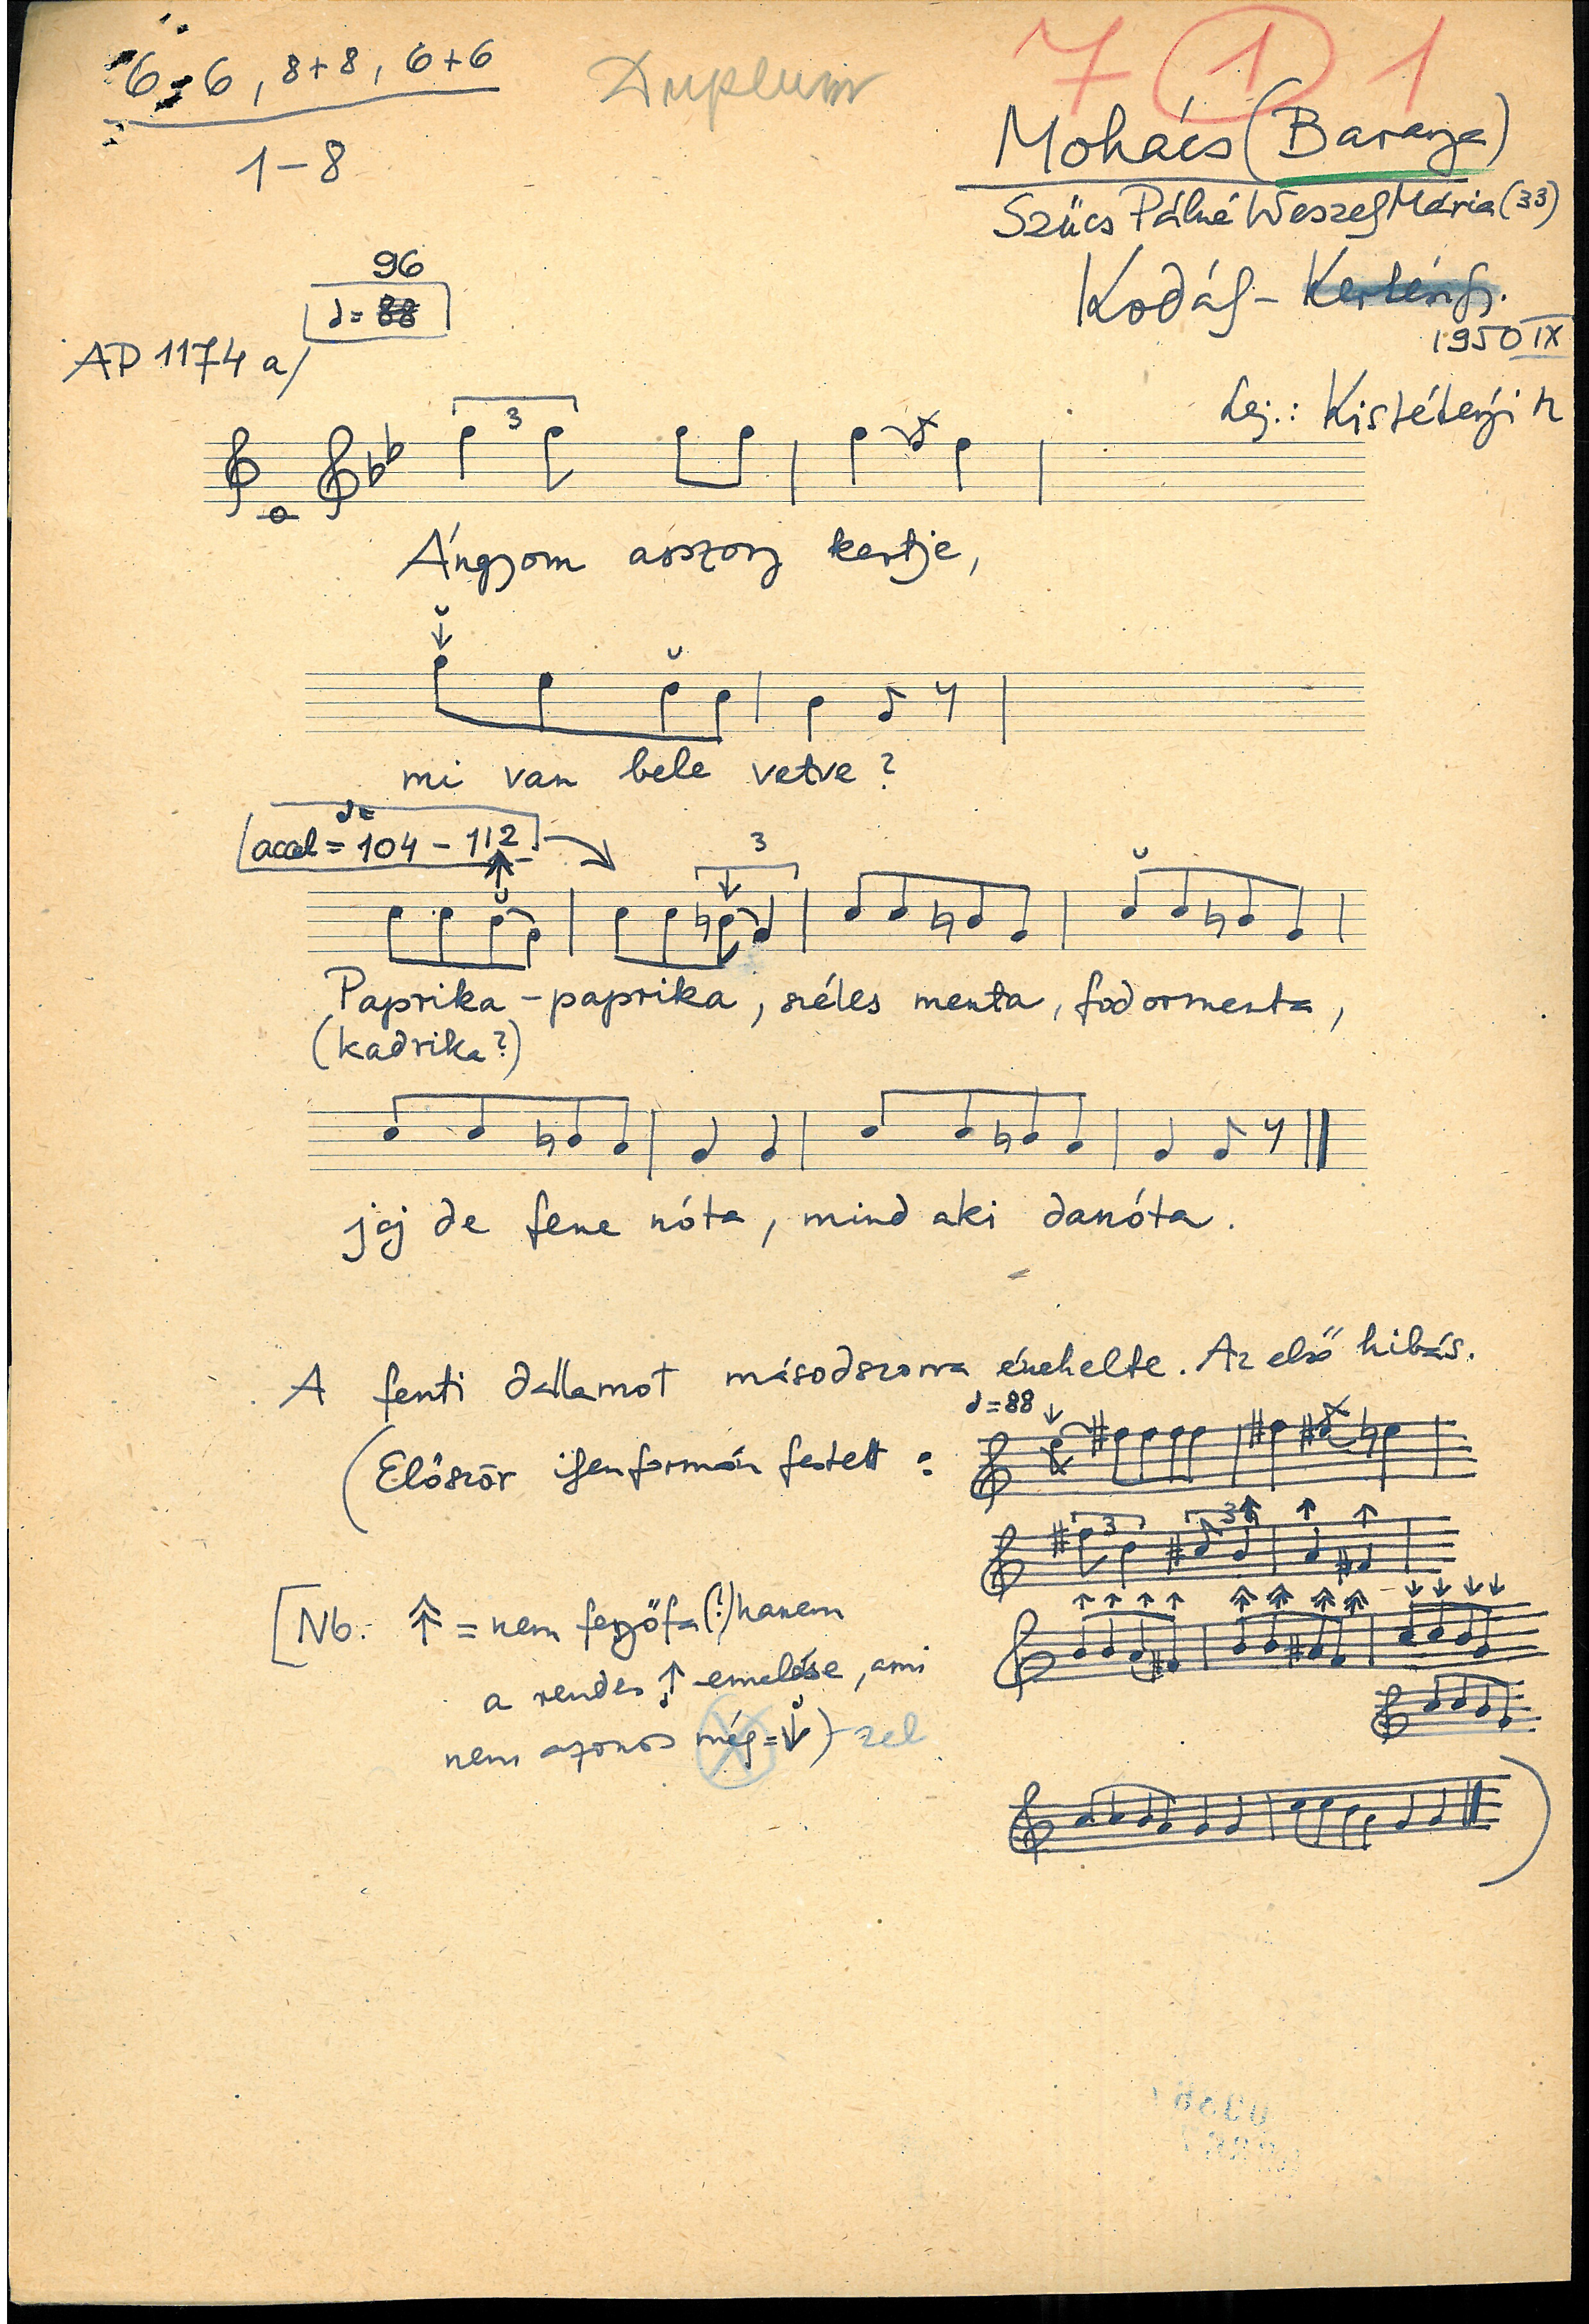 6+6, 8+8, 6+6
Duplum
7 1 1
1-8
Mohács (Baranya)
Szűcs Pálné Weszely Mária (33)
96
♩= 88
Kodály - Kertész Gy.
1950 IX
AP 1174 a/
Lej.: Kistétényi M
3
Ángyom asszony kertje,
mi van bele vetve?
accel = 104 - 112
3
Paprika - paprika, széles menta, fodormenta,
(kadrika?)
jaj de fene nóta, mind aki danóta.
A fenti dallamot másodszorra énekelte. Az első hibás.
♩=88
(Először ilyenformán festett:
3 3
[Nb. ⇑ = nem félhang(!) hanem
a rendes ↑ emelése, ami
nem azonos még = ↓)-zel